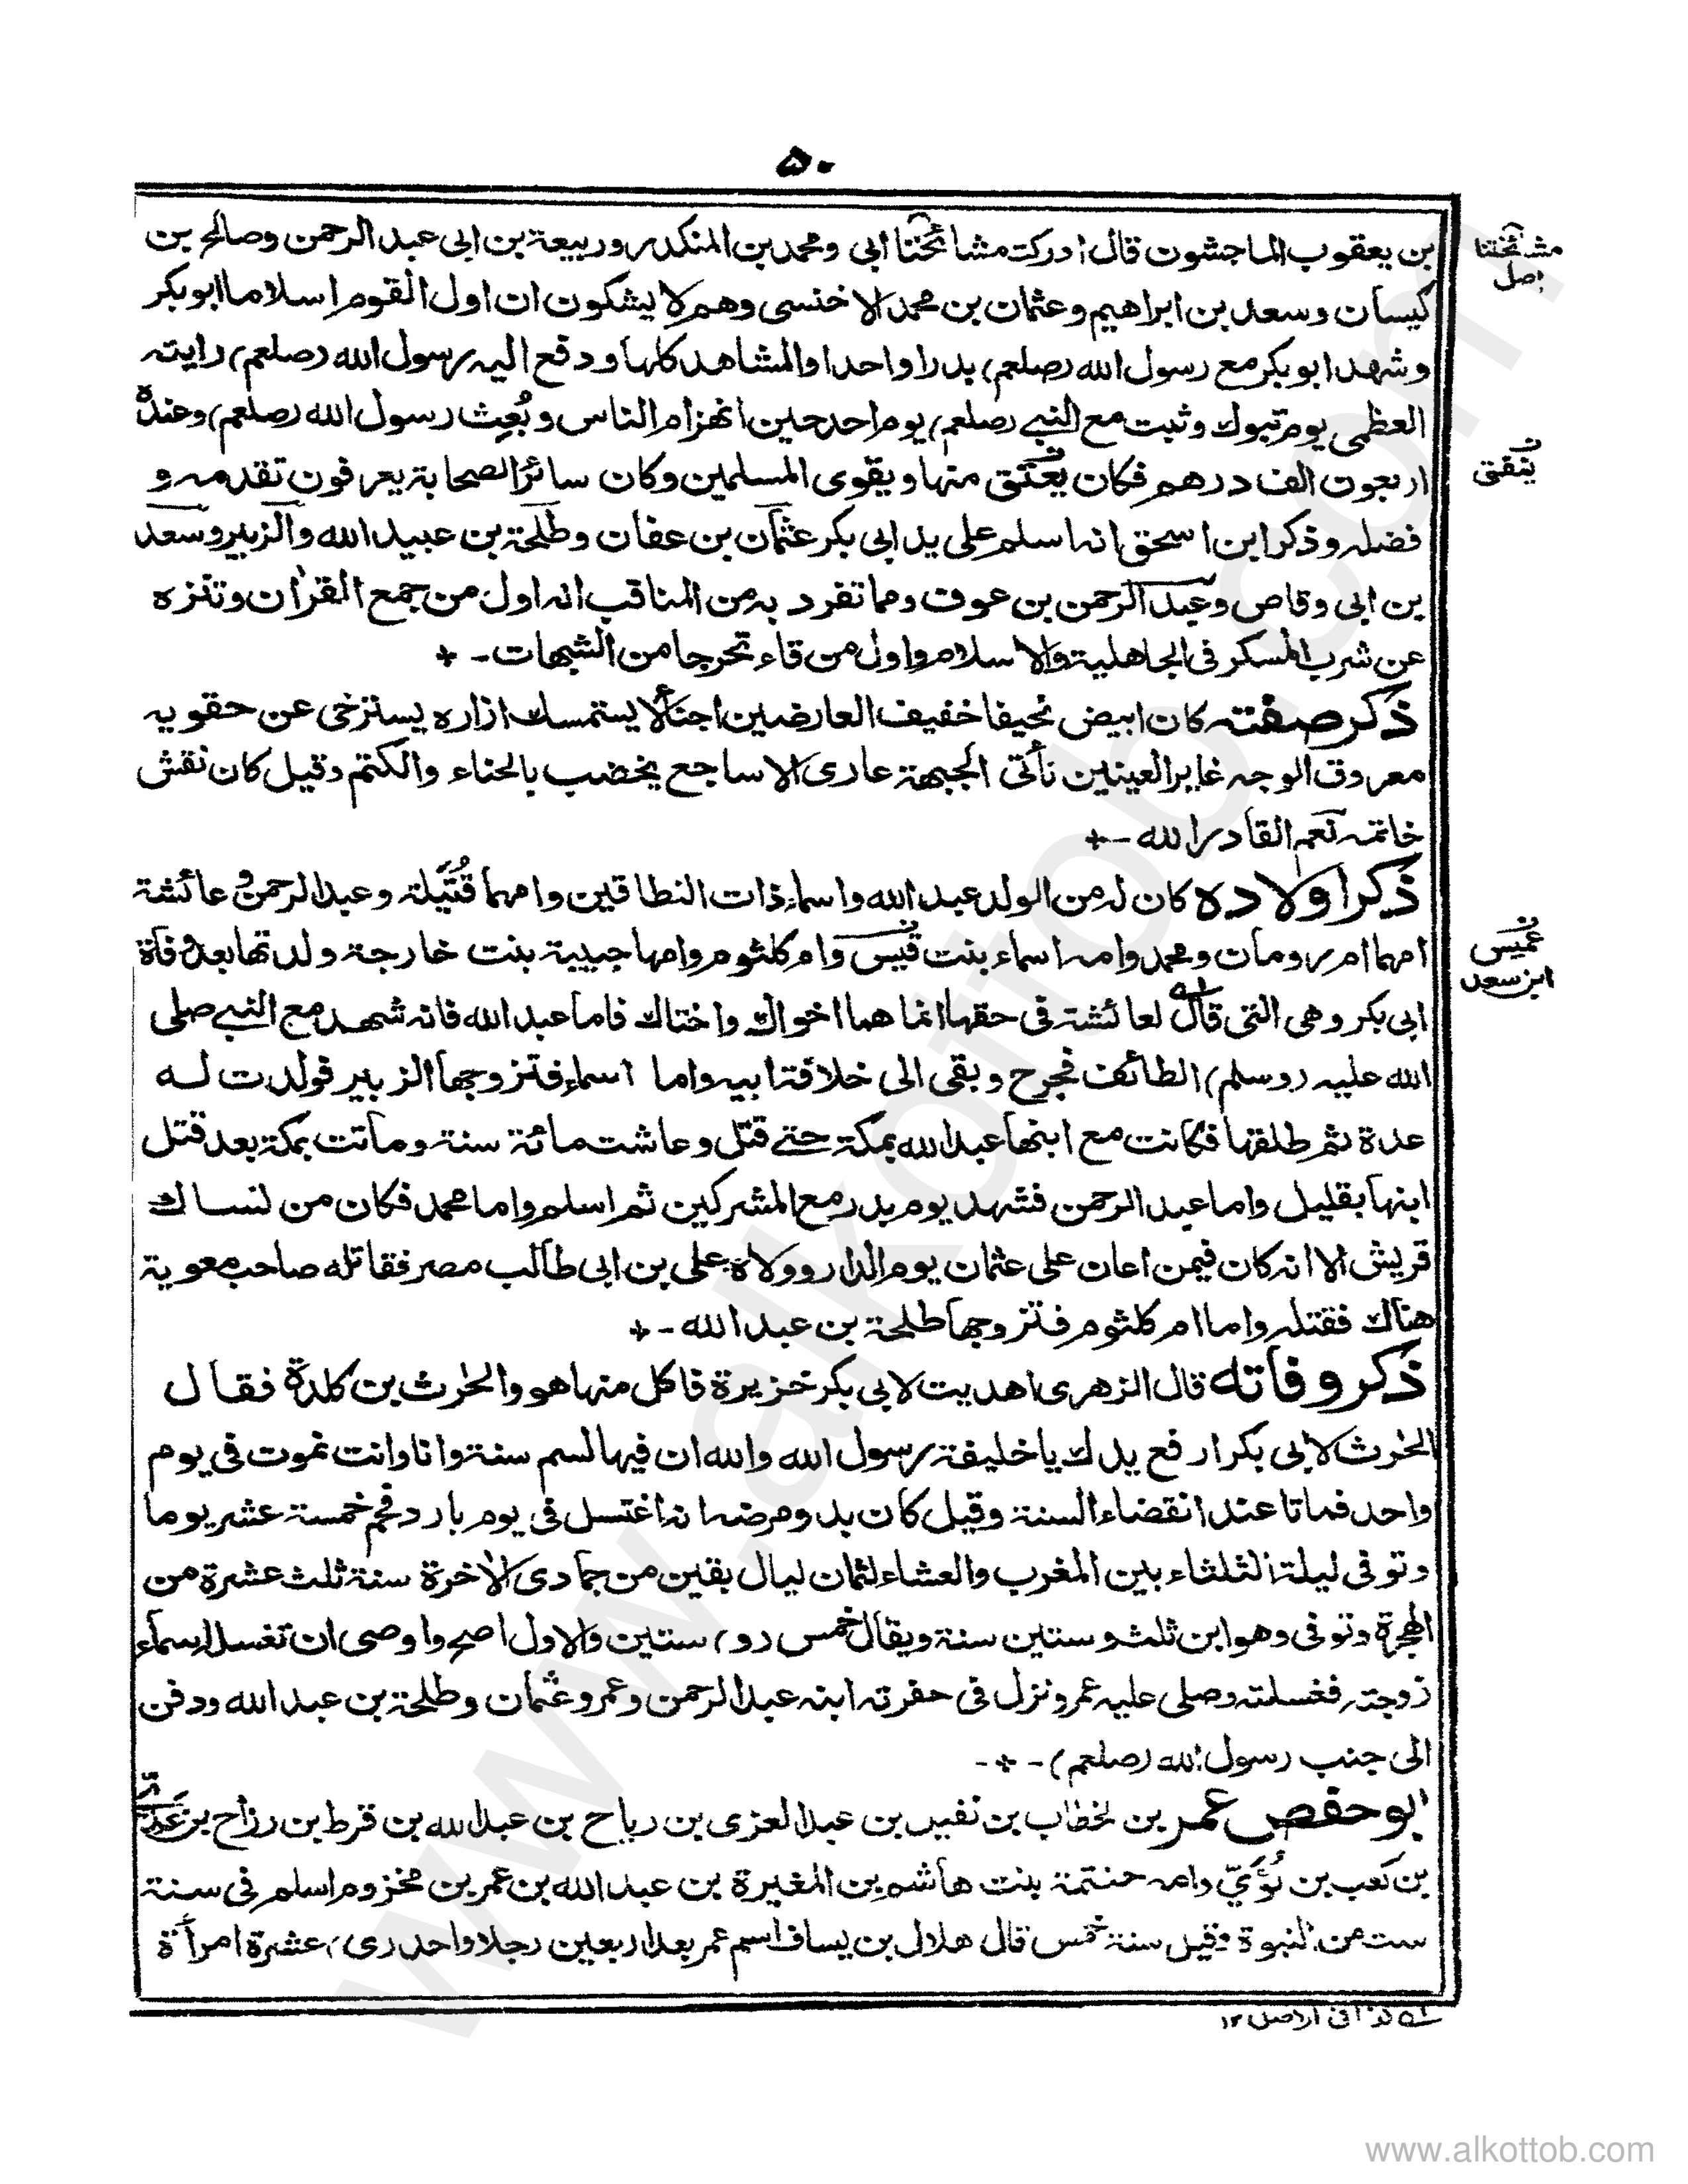 ۵۰
بن يعقوب الماجشون قال ادركت مشائخنا ابى ومحمد بن المنكدر وربيعة بن ابى عبد الرحمن وصالح بن
مشيختنا
اصل
كيسان وسعد بن ابراهيم وعثمان بن محمد الاخنسى وهم لا يشكون ان اول القوم اسلاما ابو بكر
وشهد ابو بكر مع رسول الله (صلعم) بدرا واحدا والمشاهد كلها ودفع اليه رسول الله (صلعم) رايته
العظمى يوم تبوك وثبت مع النبے (صلعم) يوم احد حين انهزام الناس وبُعِث رسول الله (صلعم) وعنده
اربعون الف درهم فكان يعتق منها ويقوى المسلمين وكان سائر الصحابة يعرفون تقدمه و
ينفق
فضله وذكر ابن اسحق انه اسلم على يد ابى بكر عثمان بن عفان وطلحة بن عبيد الله والزبير وسعد
بن ابى وقاص وعبد الرحمن بن عوف ومما تفرد به من المناقب انه اول من جمع القرآن وتنزه
عن شرب المسكر فى الجاهلية والاسلام واول من قاء تحرجا من الشبهات - +
ذكر صفته كان ابيض نحيفا خفيف العارضين اجنأ لا يستمسك ازاره يسترخى عن حقويه
معروق الوجه غاير العينين نأتى الجبهة عارى الاساجع يخضب بالحناء والكتم وقيل كان نقش
خاتمه نعم القادر الله - +
ذكر اولاده كان له من الولد عبد الله واسماء ذات النطاقين وامهما قُتَيلة وعبد الرحمن و عائشة
امهما ام رومان ومحمد وامه اسماء بنت قيس وام كلثوم وامها حبيبة بنت خارجة ولدتها بعد وفاة
عميس
ابن سعد
ابى بكر وهى التى قال لعائشة فى حقها انما هما اخواك واختاك فاما عبد الله فانه شهد مع النبے صلى
الله عليه (وسلم) الطائف فجرح وبقى الى خلافة ابيه واما اسماء فتزوجها الزبير فولدت له
عدة ثم طلقها فكانت مع ابنها عبد الله بمكة حتے قتل وعاشت مائة سنة وماتت بمكة بعد قتل
ابنها بقليل واما عبد الرحمن فشهد يوم بدر مع المشركين ثم اسلم واما محمد فكان من نساك
قريش الا انه كان فيمن اعان على عثمان يوم الدار وولاه على بن ابى طالب مصر فقاتله صاحب معوية
هناك فقتله واما ام كلثوم فتزوجها طلحة بن عبد الله - +
ذكر وفاته قال الزهرى اهديت لابى بكر خزيرة فاكل منها هو والحٰرث بن كلدة فقال
الحٰرث لابى بكر ارفع يدك يا خليفة رسول الله والله ان فيها لسم سنة وانا وانت نموت فى يوم
واحد فماتا عند انقضاء السنة وقيل كان بدو مرضه انه اغتسل فى يوم بارد فحم خمسة عشر يوما
وتوفى ليلة الثلثاء بين المغرب والعشاء لثمان ليال بقين من جمادى الاخرة سنة ثلث عشرة من
الهجرة وتوفى وهو ابن ثلث وستين سنة ويقال خمس (و) ستين والاول اصح واوصى ان تغسله اسماء
زوجته فغسلته وصلى عليه عمر ونزل فى حفرته ابنه عبد الرحمن وعمر وعثمان وطلحة بن عبد الله ودفن
الى جنب رسول الله (صلعم) - + -
ابو حفص عمر بن الخطاب بن نفيل بن عبد العزى بن رباح بن عبد الله بن قرط بن رزاح بن عَدِىّ
بن كعب بن لُؤَىّ وامه حنتمة بنت هاشم بن المغيرة بن عبد الله بن عمر بن مخزوم اسلم فى سنة
ست من النبوة وقيل سنة خمس قال هلال بن يساف اسلم عمر بعد اربعين رجلا واحد (ى) عشرة امرأة
لہ كذا فى الاصل ١٢
www.alkottob.com
www.alkottob.com